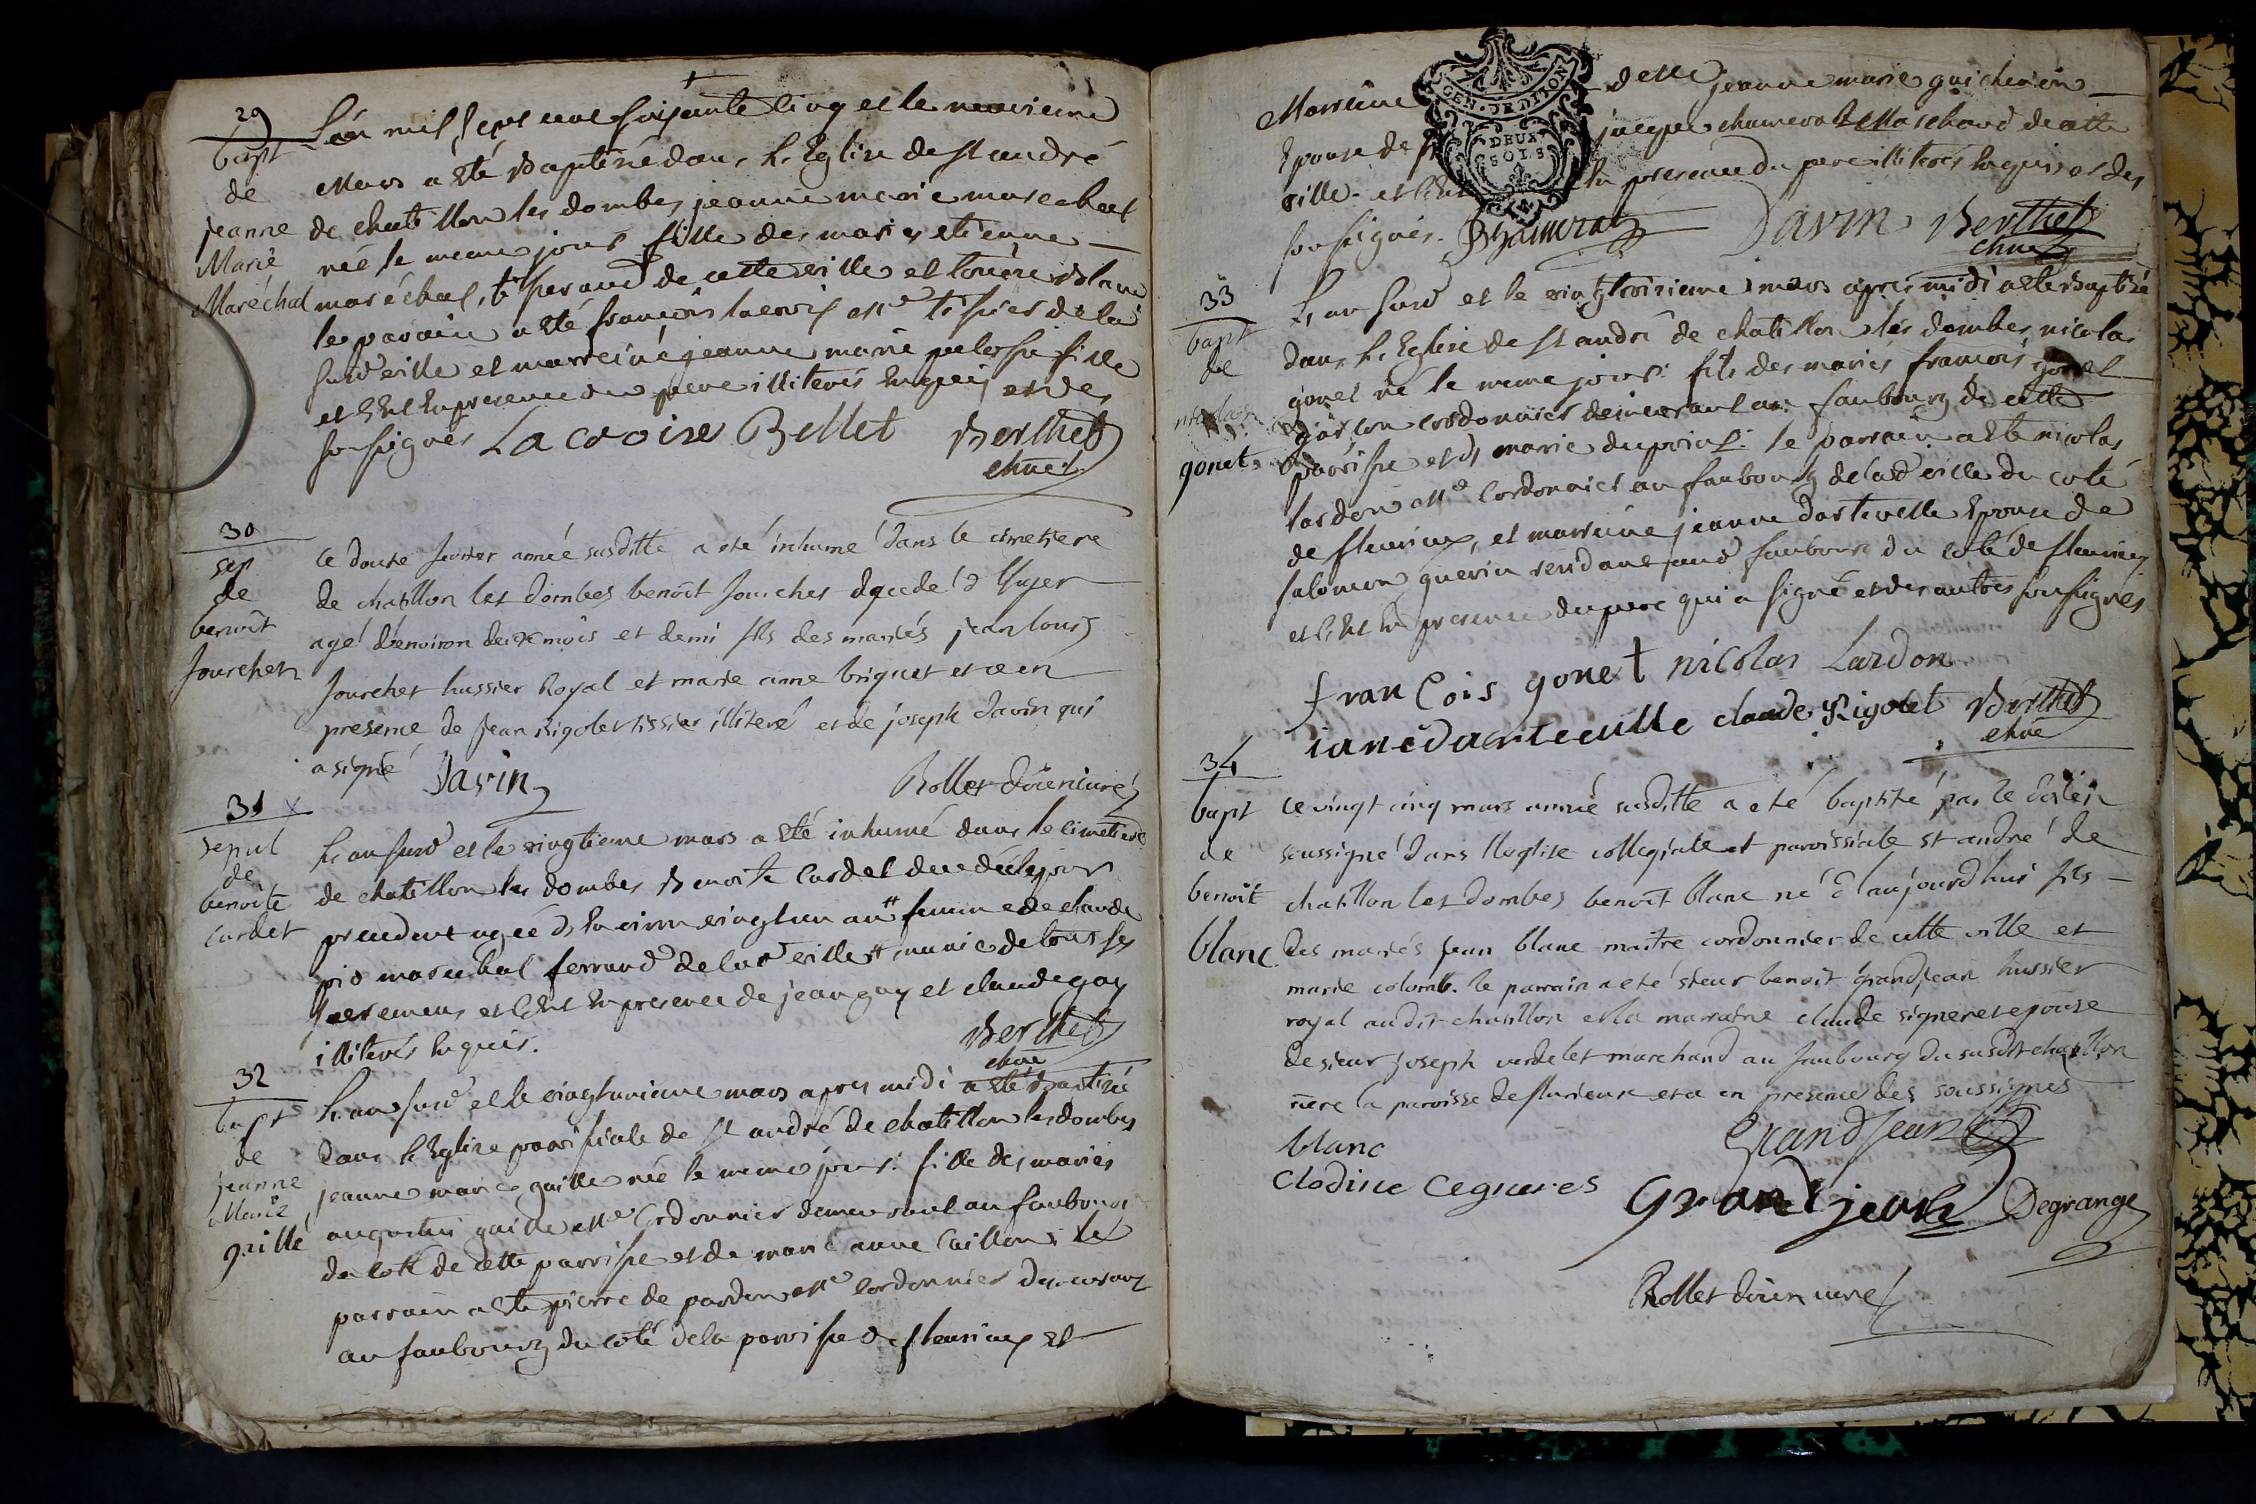 29
bapt
de
jeanne
Marie
Maréchal
L'an mil sept cent soixante cinq et le neuvieme
Mars a eté Baptisée dans l'Eglise de st andré
de chatillon les dombes jeanne marie marechal
née le meme jour fille des maries etienne
maréchal, tisserand de cette ville et Blanc
le parain a eté françois lacroix me tissier de la
susd ville et marreine jeanne marie fille
et c'est en presence du pere illiterés enquis et des
soussignés Lacroise Bellet Berthet
chne
30
sep
de
benoît
Jourchet
Ce douze fevrier année susditte a eté inhumé dans le cimetiere
de chatillon les dombes benoît Jourchet decedé d'hyer
agé d'environ deux mois et demi fils des mariés jean louis
Jourchet hussier Royal et marie anne briquet et ce en
presence de Jean Rigolet tissier illiteré et de joseph davin qui
a signé Davin
Rollet doien curé
31 x
sepul
de
benoîte
Cardet
L'an susd et le vingtieme mars a eté inhumé dans le cimetiere
de chatillon les dombes Benoite Cardet decedée le jour
precedent agée d'environ vingt un an femme de claude
pio marechal ferrand de lad ville munie de tous ses
sacremens et c'est en presence de jean gay et claude gay
illiterés enquis.
Berthet
chne
32
bapt
de
jeanne
Marie
guillé
L'an susd et le vingtunieme mars apres midi a eté Baptisée
dans l'Eglise paroissiale de st andré de chatillon les dombes
jeanne marie guille née le meme jour fille des mariés
augustin guille me Cordonnier demeurant au faubourg
du coté de cette paroisse et de marie anne Caillon; le
parrain a eté pierre de pardon me cordonnier demeurant
au faubourg du coté de la paroisse de fleurieux et
GEN. DE DIION
DEUX
SOLS
Marreine delle jeanne marie guichenon
Epouse de jacque chamerat Marchand de cette
ville et c'est en presence du pere illiterés enquis et des
soussignés. Chamerat Davin Berthet
chne
33
bapt
de
nicolas
gonet
L'an susd et le vingt troisieme mars apres midi a eté Baptisé
dans l'Eglise de st andré de chatillon les dombes nicolas
gonet né le meme jour: fils des maries françois gonet
garçon cordonnier demeurant au faubourg de cette
paroisse et de marie le parrain a eté nicolas
lardon me Cordonnier au faubourg de lad ville du coté
de fleurieux, et marreine jeanne dartevelle Epouse de
salomon guerin residant aud faubourg du coté de fleurieux
et c'est en presence du pere qui a signé et des autres soussignés
françois gonet nicolas Lardon
iane darteuille claude Rigolet Berthet
chne
34
bapt
de
benoît
blanc
Ce vingt cinq mars année susditte a eté baptisé par le doïen
soussigné dans l'eglise collegiale et paroissiale st andré de
chatillon les dombes benoît blanc né d'aujourd'hui fils
des mariés jean blanc maître cordonnier de cette ville et
marie colomb. le parrain a eté sieur benoit Grandjean hussier
royal audit chatillon et la marraine claude signeret epouse
de sieur joseph verdelet marchand au faubourg du susdit chatillon
riere la paroisse de fleurieux et ce en presence des soussignés
blanc Grandjean
Clodine Cegneres Grandjean Degrange
Rollet doien curé